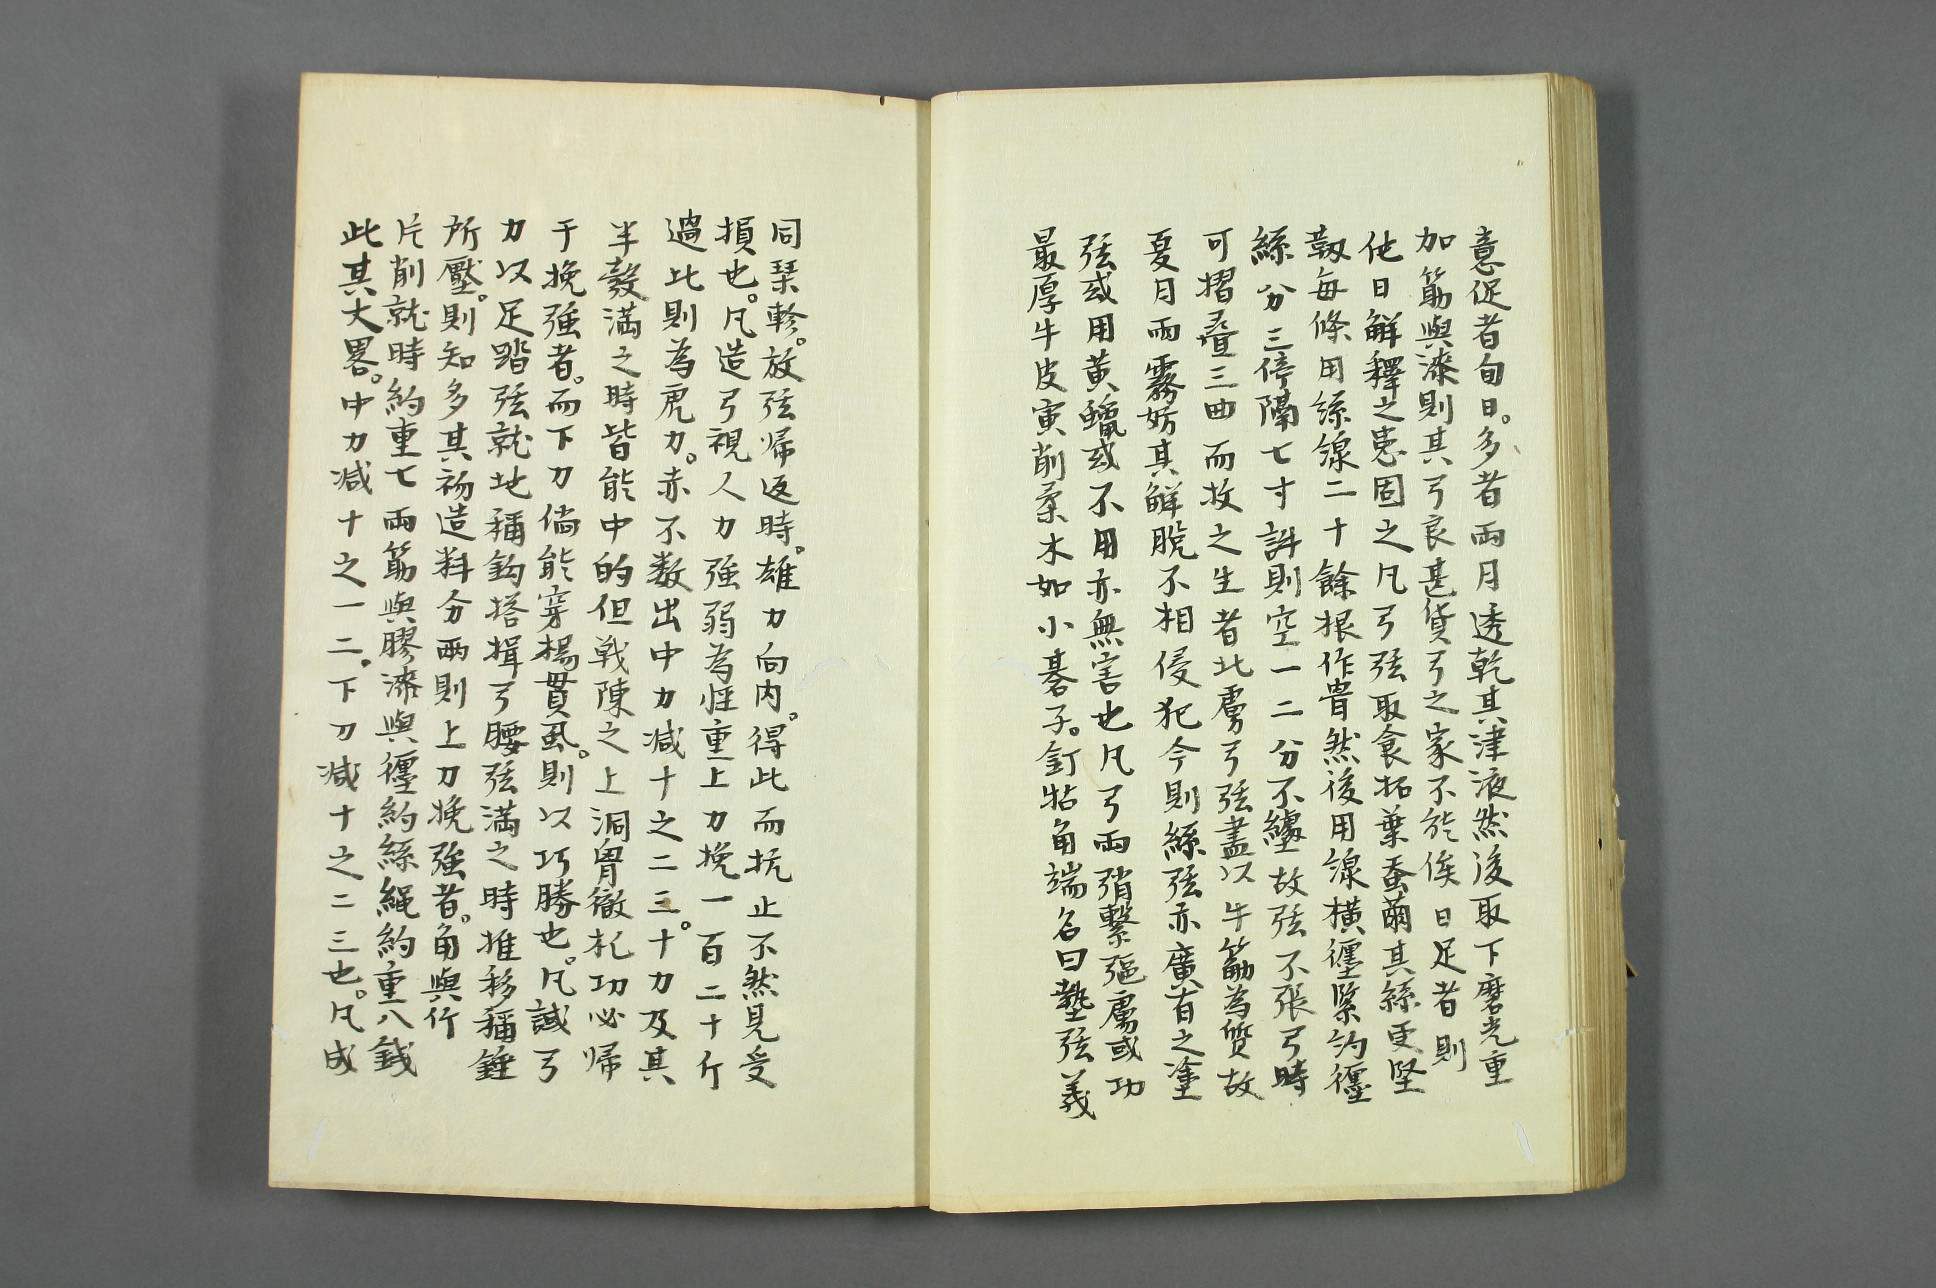 意促者旬日。多者兩月透乾其津液然後取下磨光重
加筋與漆則其弓良甚貨弓之家不能俟日足者則
他日解釋之患因之凡弓弦取食柘葉蚕繭其絲更堅
韌每條用絲線二十餘根作骨然後用線橫纏緊約纏
絲分三停隔七寸許則空一二分不纏故弦不張弓時
可摺疊三曲而收之生者北虜弓弦盡以牛筋為質故
夏月雨霧妨其解脫不相侵犯今則絲弦亦廣有之塗
弦或用黃蠟或不用亦無害也凡弓兩弰繫彄處或功
最厚牛皮寅削柔木如小碁子。釘粘角端名曰墊弦義
同琹軫。放弦帰返時。雄力向內。得此而抗止不然見受
損也。凡造弓視人力強弱為怪重上力挽一百二十斤
過此則為虎力。赤不数出中力减十之二三。十力及其
半彀滿之時皆能中的但戦陳之上洞胷徹札功必帰
于挽強者。而下力倘能穿楊貫虱。則以巧勝也。凡試弓
力以足踏弦就地稱鈎搭揖弓腰弦滿之時推移稱錘
所壓。則知多其初造料分兩則上刀挽強者。角與竹
片削就時約重七兩筋與膠漆與纏約絲繩約重八錢
此其大畧。中力减十之一二。下刀减十之二三也。凡成